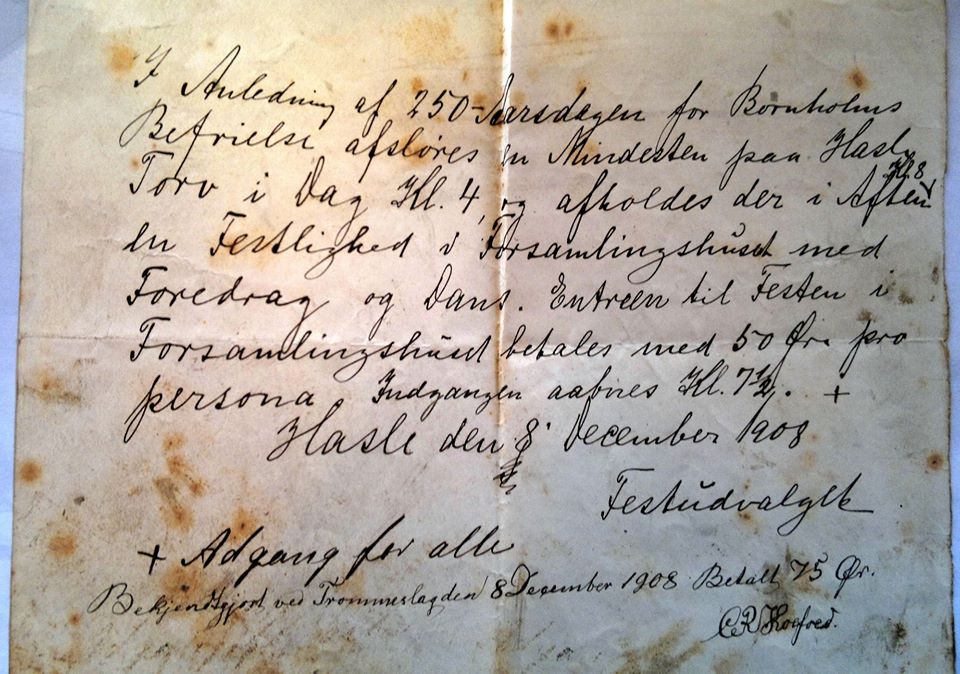 I Anledning af 250-Aarsdagen for Bornholms
Befrielse afsløres en Mindesten paa Hasle
Torv i Dag Kl. 4, og afholdes der i Aften Kl. 8
en Festlighed i Forsamlingshuset med
Foredrag og Dans. Entreen til Festen i
Forsamlingshuset betales med 50 Øre pro
persona. Indgangen aabnes Kl. 7½. +
Hasle den 8' December 1908
Festudvalget
+ Adgang for alle
Bekjendtgjort ved Trommeslag den 8 December 1908 Betalt 75 Ør.
Koefoed.